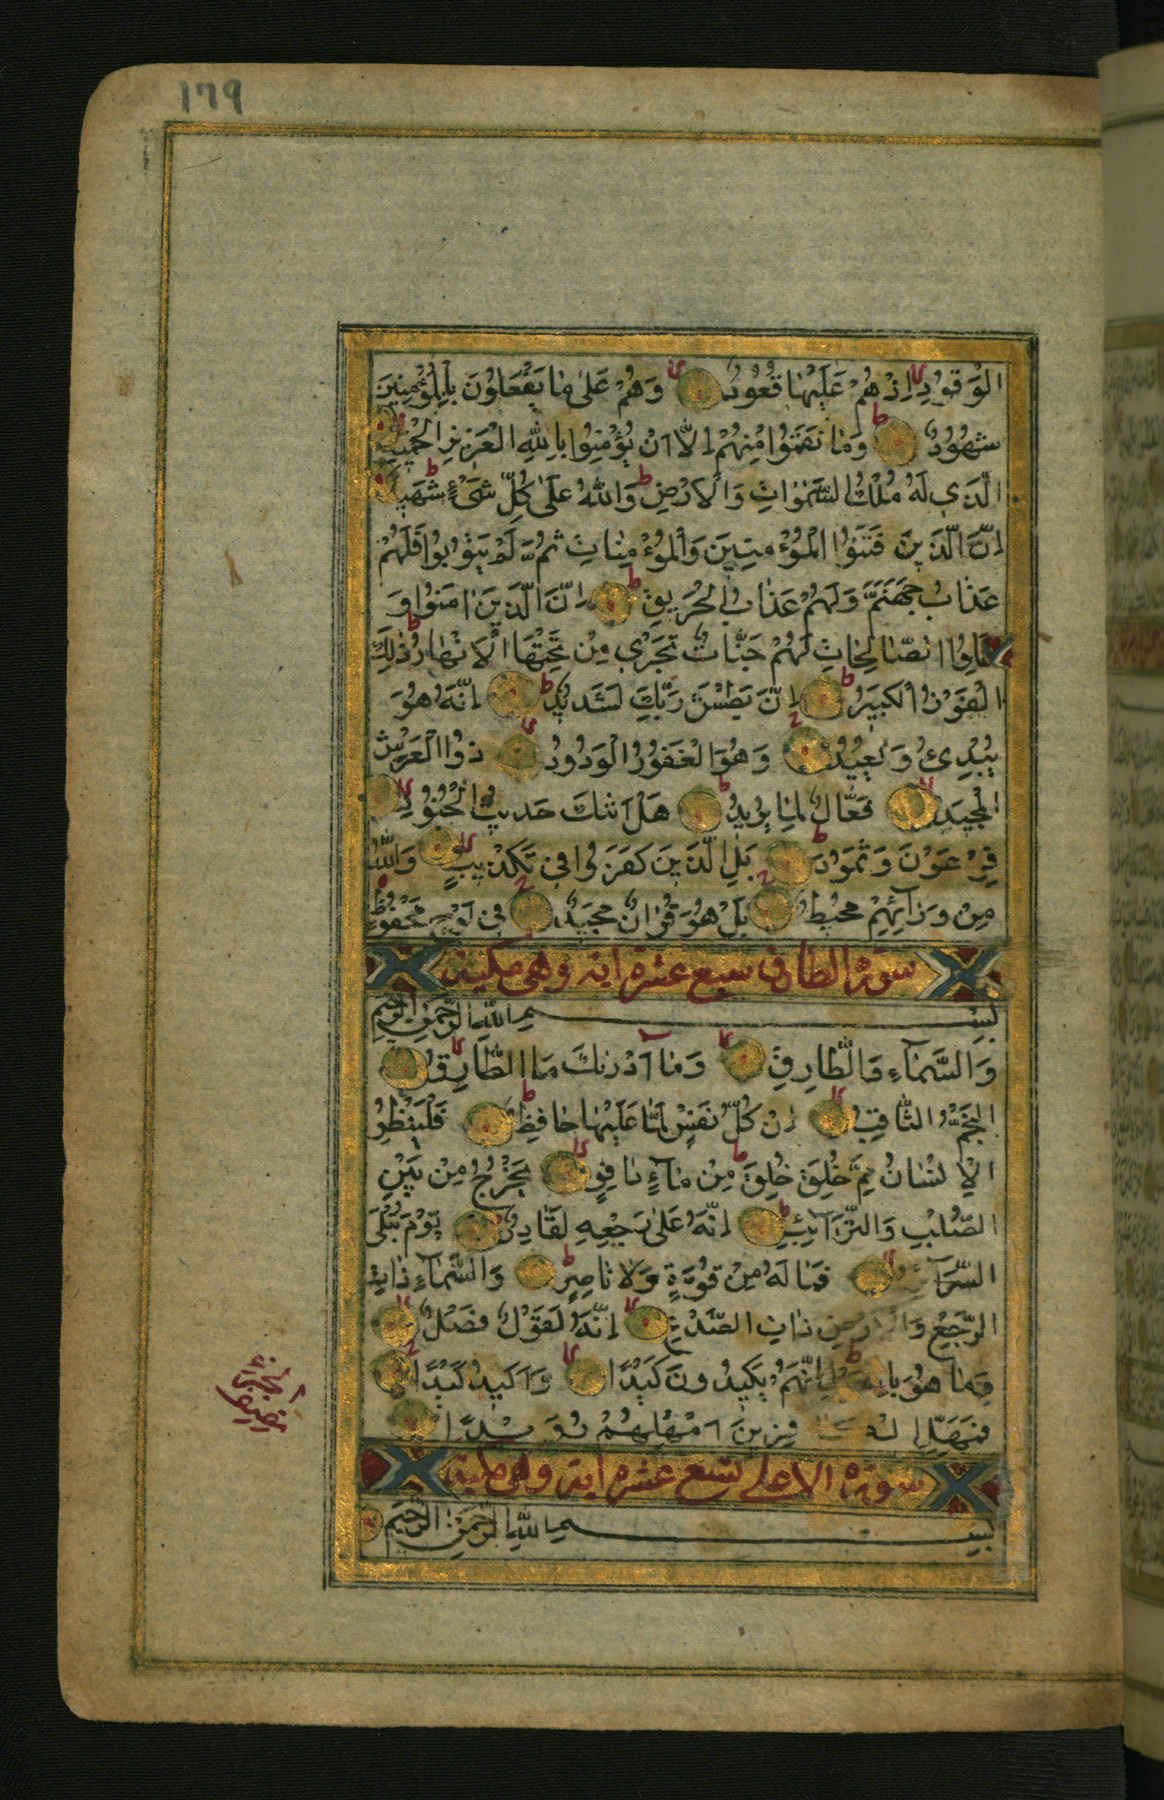 ١٦٩
الْوَقُودِ اِذْ هُمْ عَلَيْهَا قُعُودٌ وَهُمْ عَلٰى مٰا يَفْعَلُونَ بِالْمُؤْمِنِينَ
شُهُودٌ وَمٰا نَقَمُوا مِنْهُمْ اِلَّا اَنْ يُؤْمِنُوا بِاللّٰهِ الْعَزِيزِ الْحَمِيدِ
الَّذِي لَهُ مُلْكُ السَّمٰوٰاتِ وَالْاَرْضِ وَاللّٰهُ عَلٰى كُلِّ شَيْءٍ شَهِيدٌ
اِنَّ الَّذِينَ فَتَنُوا الْمُؤْمِنِينَ وَالْمُؤْمِنٰاتِ ثُمَّ لَمْ يَتُوبُوا فَلَهُمْ
عَذٰابُ جَهَنَّمَ وَلَهُمْ عَذٰابُ الْحَرِيقِ اِنَّ الَّذِينَ اٰمَنُوا وَ
عَمِلُوا الصّٰالِحٰاتِ لَهُمْ جَنّٰاتٌ تَجْرِي مِنْ تَحْتِهَا الْاَنْهٰارُ ذٰلِكَ
الْفَوْزُ الْكَبِيرُ اِنَّ بَطْشَ رَبِّكَ لَشَدِيدٌ اِنَّهُ هُوَ
يُبْدِئُ وَيُعِيدُ وَهُوَ الْغَفُورُ الْوَدُودُ ذُوا الْعَرْشِ
الْمَجِيدُ فَعّٰالٌ لِمٰا يُرِيدُ هَلْ اَتٰىكَ حَدِيثُ الْجُنُودِ
فِرْعَوْنَ وَثَمُودَ بَلِ الَّذِينَ كَفَرُوا فِي تَكْذِيبٍ وَاللّٰهُ
مِنْ وَرٰآئِهِمْ مُحِيطٌ بَلْ هُوَ قُرْاٰنٌ مَجِيدٌ فِي لَوْحٍ مَحْفُوظٍ
سورة الطارق سبع عشرة اية وهي مكية
بِسْمِ اللّٰهِ الرَّحْمٰنِ الرَّحِيمِ
وَالسَّمٰآءِ وَالطّٰارِقِ وَمٰا اَدْرٰىكَ مَا الطّٰارِقُ
النَّجْمُ الثّٰاقِبُ اِنْ كُلُّ نَفْسٍ لَمّٰا عَلَيْهٰا حٰافِظٌ فَلْيَنْظُرِ
الْاِنْسٰانُ مِمَّ خُلِقَ خُلِقَ مِنْ مٰآءٍ دٰافِقٍ يَخْرُجُ مِنْ بَيْنِ
الصُّلْبِ وَالتَّرٰآئِبِ اِنَّهُ عَلٰى رَجْعِهِ لَقٰادِرٌ يَوْمَ تُبْلَى
السَّرٰآئِرُ فَمٰا لَهُ مِنْ قُوَّةٍ وَلَا نٰاصِرٍ وَالسَّمٰآءِ ذٰاتِ
الرَّجْعِ وَالْاَرْضِ ذٰاتِ الصَّدْعِ اِنَّهُ لَقَوْلٌ فَصْلٌ
وَمٰا هُوَ بِالْهَزْلِ اِنَّهُمْ يَكِيدُونَ كَيْدًا وَاَكِيدُ كَيْدًا
فَمَهِّلِ الْكٰافِرِينَ اَمْهِلْهُمْ رُوَيْدًا
سورة الاعلى تسع عشرة اية وهي مكية
بِسْمِ اللّٰهِ الرَّحْمٰنِ الرَّحِيمِ